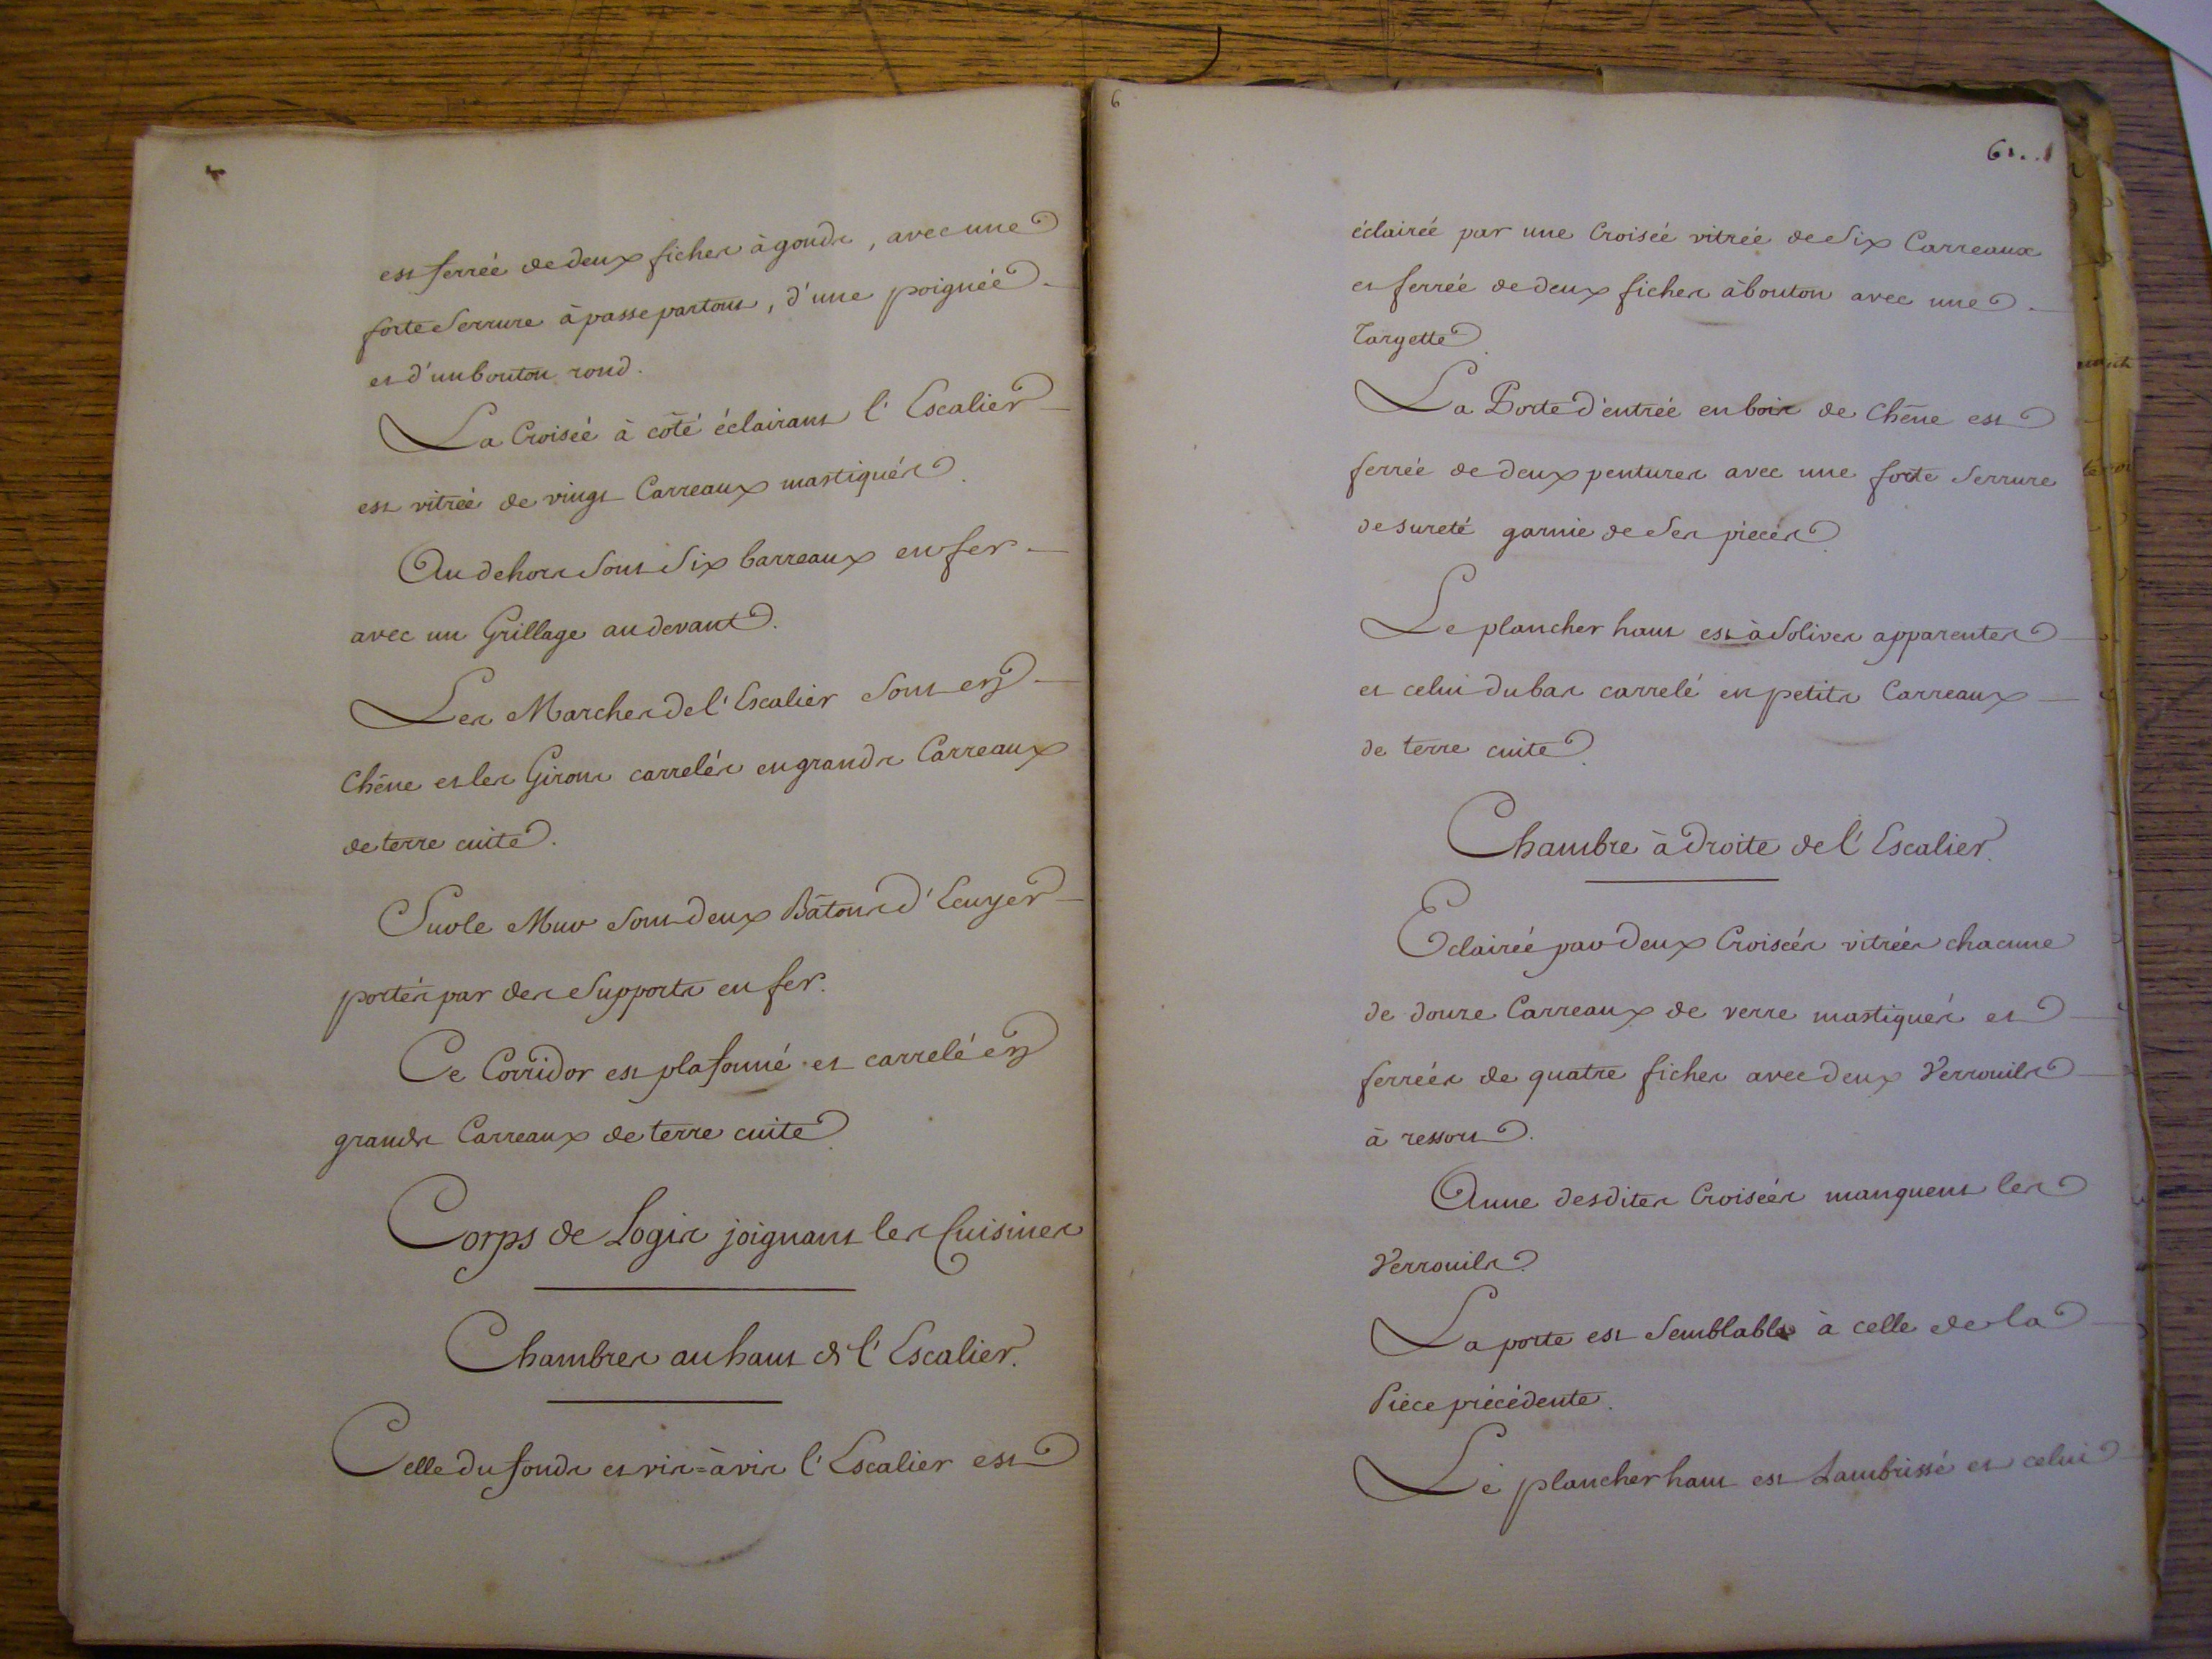 est ferrée de deux fiches à gonds, avec une
forte Serrure à passe partout, d'une poignée
et d'un bouton rond.
La Croisée à côté éclairant l'Escalier
est vitrée de vingt Carreaux mastiqués.
Au dehors Sont Six barreaux en fer
avec un Grillage au devant.
Les Marches de l'Escalier Sont en
Chêne et les Girons carrelés en grands Carreaux
de terre cuite.
Sur le Mur Sont deux Bâtons d'Ecuyer
portés par des Supports en fer.
Ce Corridor est plafonné et carrelé en
grands Carreaux de terre cuite.
Corps de Logis joignant les Cuisines
Chambres au haut de l'Escalier.
Celle du fonds et vis=à vis l'Escalier est
6
éclairée par une Croisée vitrée de Six Carreaux
et ferrée de deux fiches à bouton avec une
Targette.
La Porte d'entrée en bois de Chêne est
ferrée de deux pentures avec une forte Serrure
de sureté garnie de Ses pièces.
Le plancher haut est à Solives apparentes
et celui du bas carrelé en petits Carreaux
de terre cuite.
Chambre à droite de l'Escalier.
Eclairée par deux Croisées vitrées chacune
de douze Carreaux de verre mastiqués et
ferrées de quatre fiches avec deux Verrouils
à ressort.
A une desdites Croisées manquent les
Verrouils.
La porte est Semblable à celle de la
Pièce précédente.
Le plancher haut est Lambrissé et celui